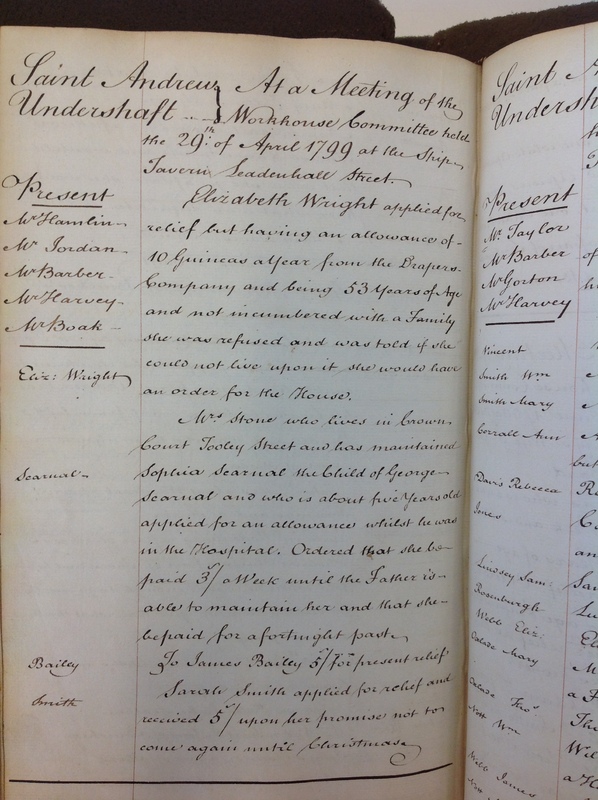 Saint Andrew
Undershaft
At a Meeting of the
Workhouse Committee held
the 29th. of April 1799 at the Ship
Tavern Leadenhall Street.
Present
Mr Hamlin
Mr Jordan
Mr Barber
Mr Harvey
Mr Boak
Eliz: Wright
Elizabeth Wright applied for
relief but having an allowance of
10 Guineas a Year from the Drapers
Company and being 53 Years of Age
and not incumbered with a Family
she was refused and was told if she
could not live upon it she would have
an order for the House.
Searnal
Mrs Stone who lives in Crown
Court Tooley Street and has maintained
Sophia Searnal the Child of George
Searnal and who is about five Years old
applied for an allowance whilst he was
in the Hospital. Ordered that she be
paid 3/ a Week until the Father is
able to maintain her and that she
be paid for a fortnight past
Bailey
To James Bailey 5/ for present relief
Smith
Sarah Smith applied for relief and
received 5/ upon her promise not to
come again until Christmas
Saint A
Undersh
Present
Mr Taylor
Mr Barber
Mr Gorton
Mr Harvey
Vincent
Smith Wm
Smith Mary
Corrall Ann
Davis Rebecca
Jones
Lindsey Sam
Rosenburgh
Webb Eliz:
Oakde Mary
Oakde Thos
Nott Wm
Webb James